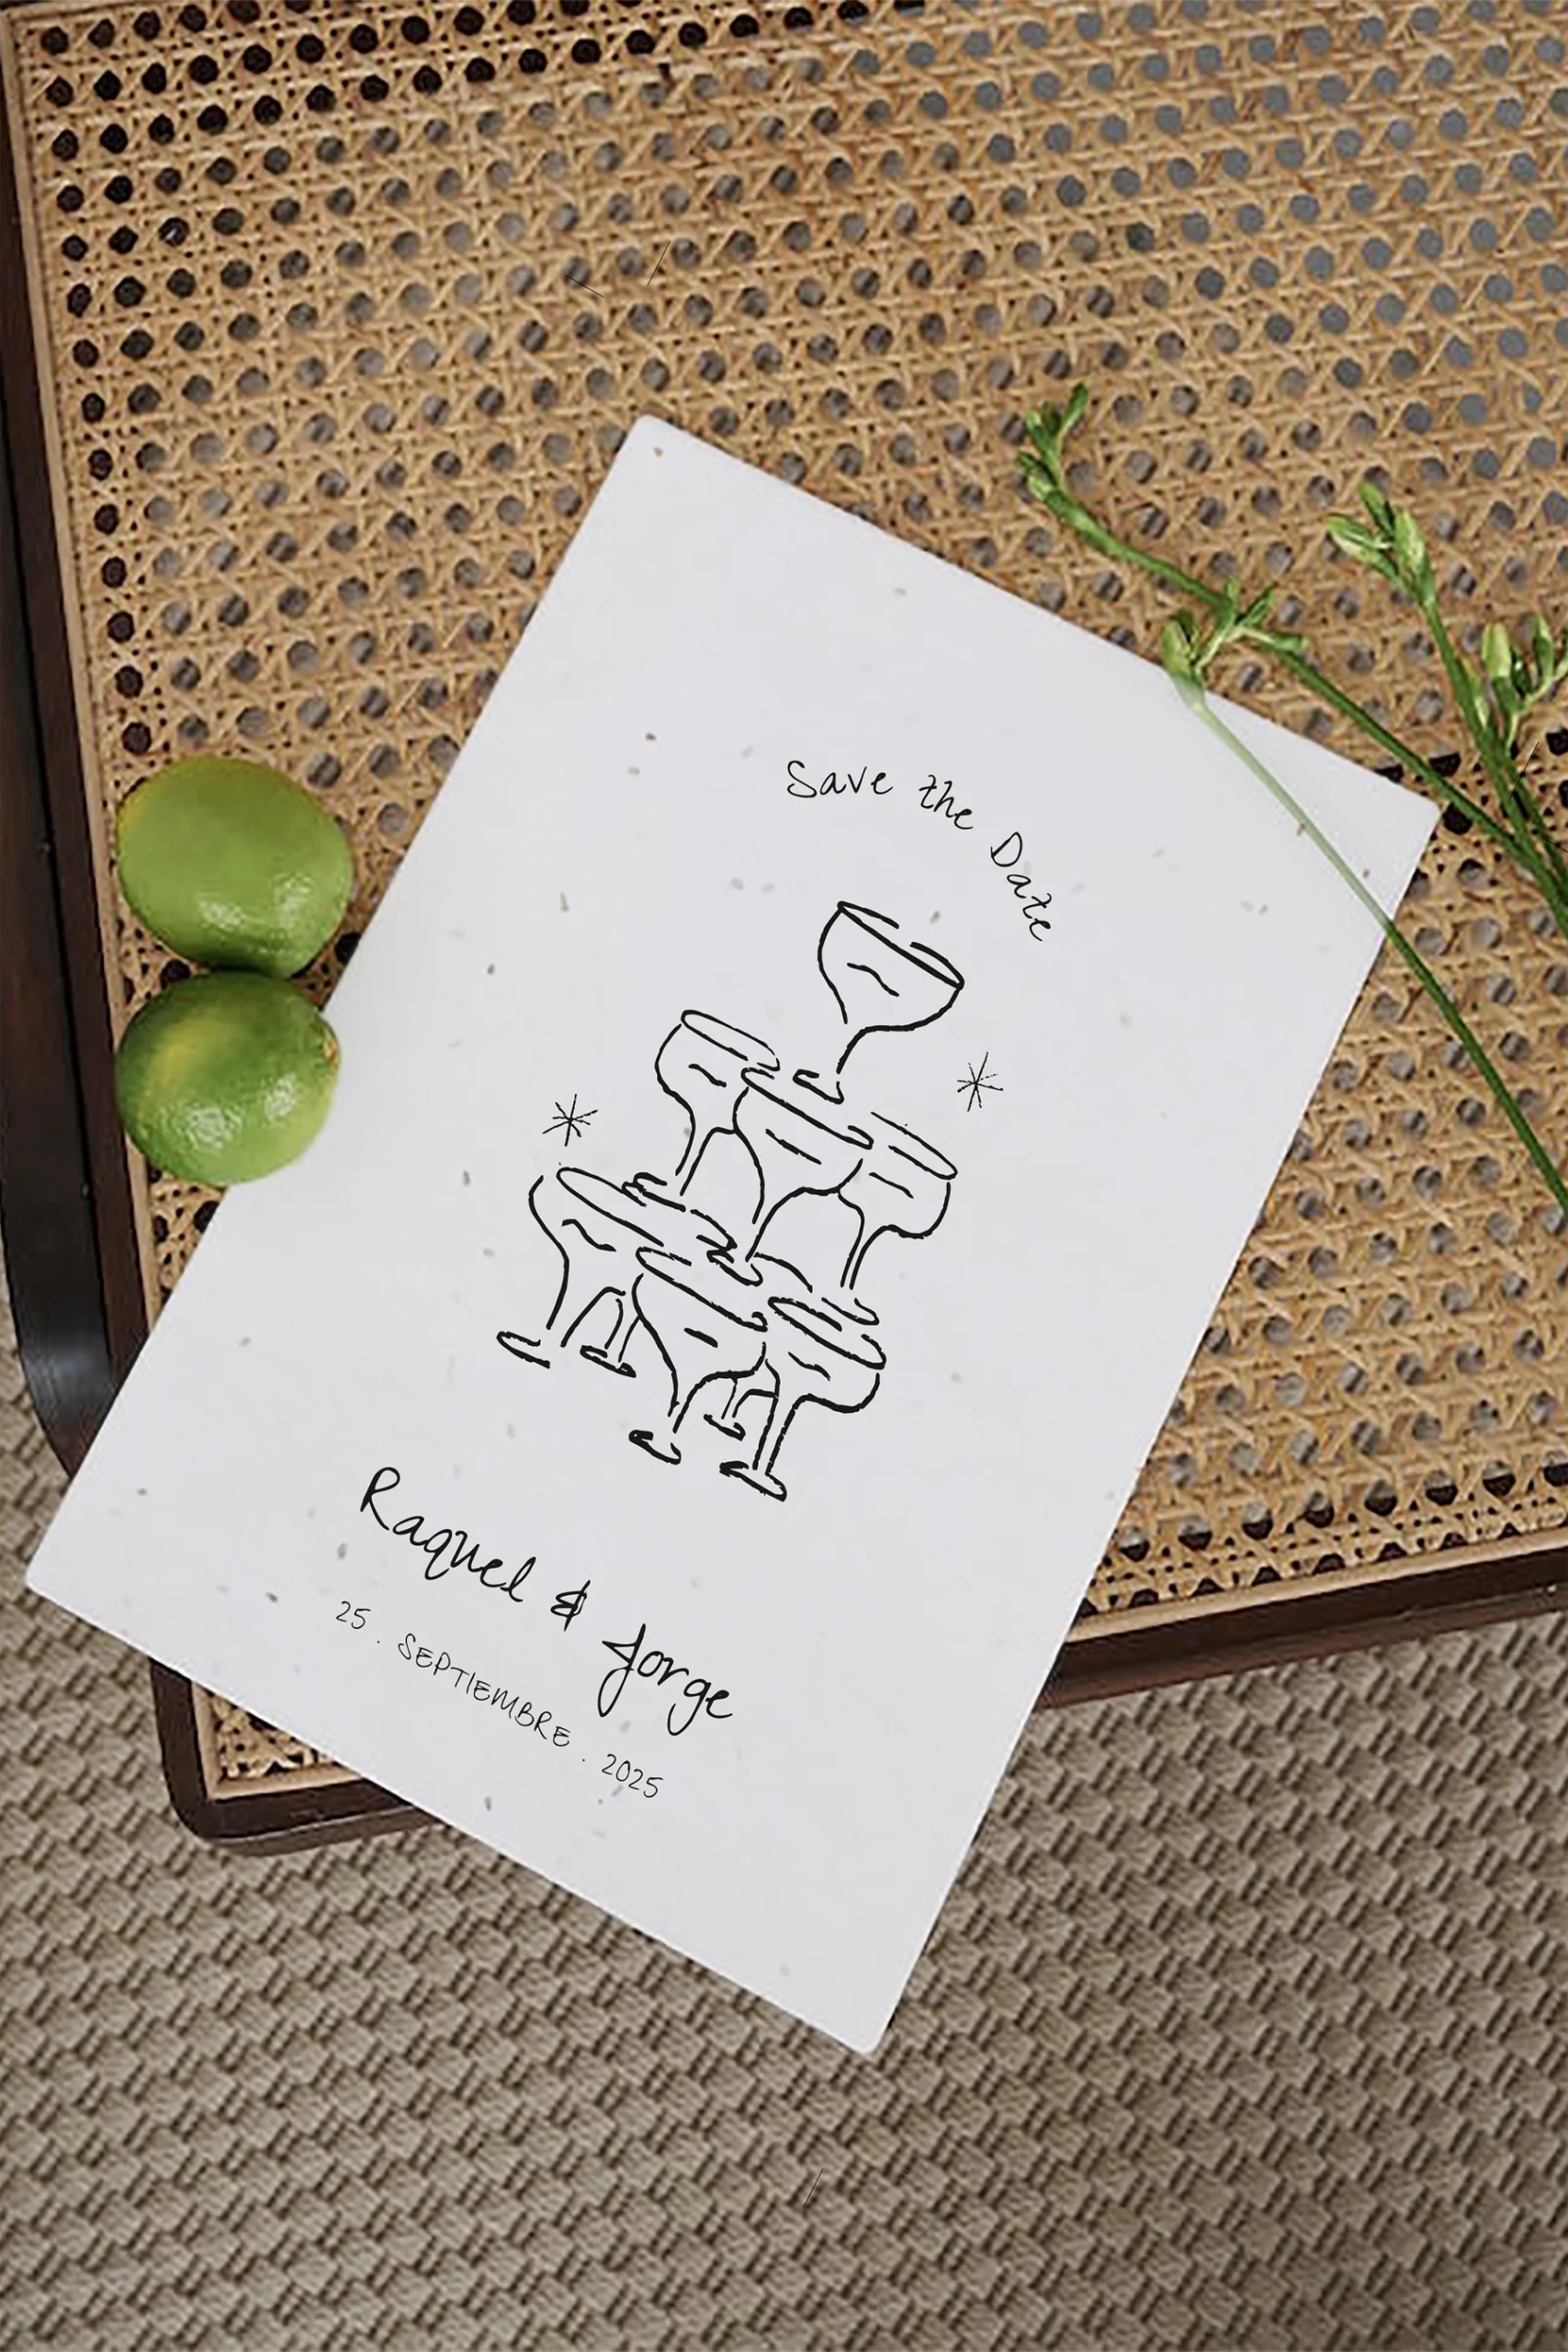 Save the Date
Raquel & Jorge
25 . SEPTIEMBRE . 2025